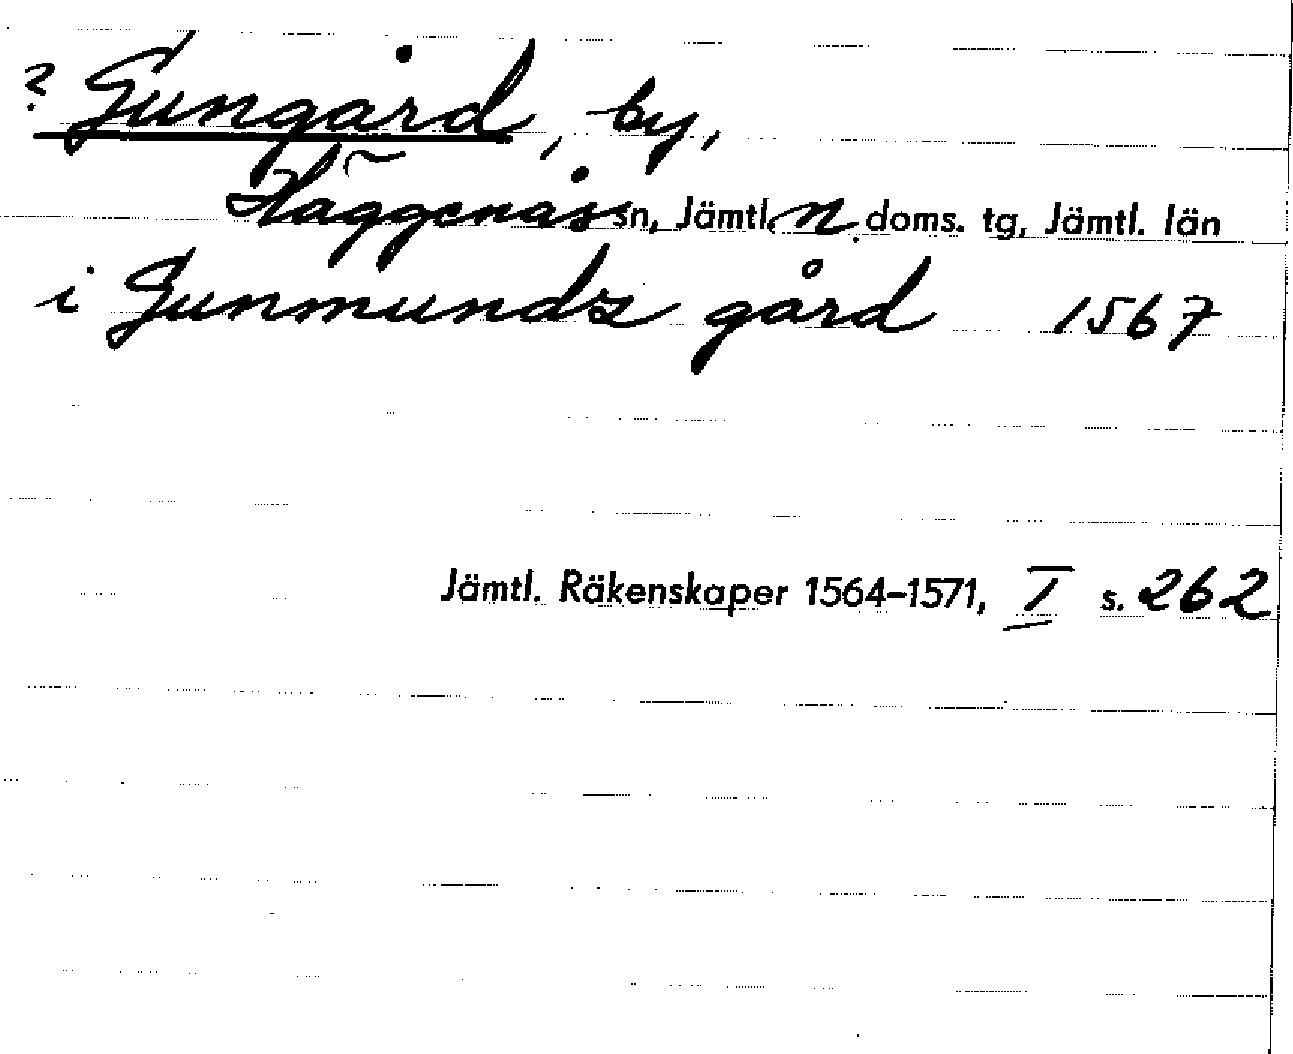 ? Gungård, by,
Häggenås sn, Jämtl. n. doms. tg, Jämtl. län
i Gunmundz gård 1567
Jämtl. Räkenskaper 1564–1571, I s. 262